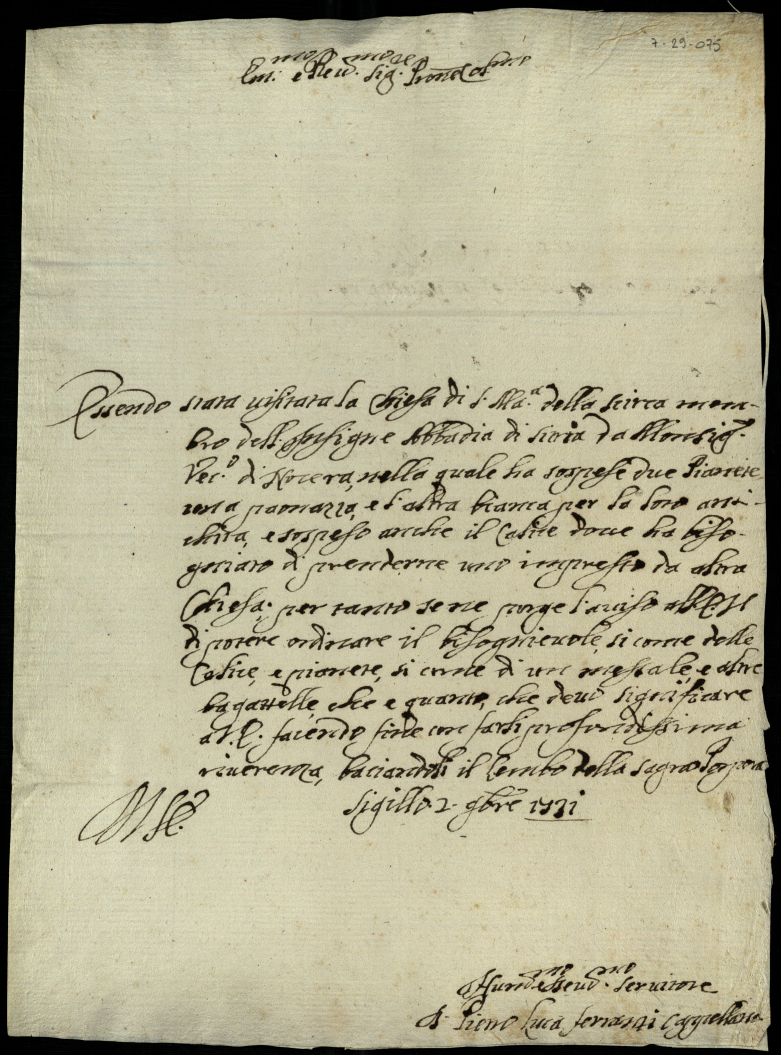 7-29-075
Em:mo e Reud.mo Sig.re Prone Col.mo
Essendo stata uisitata la Chiesa di S. Ma.a della scirca mem-
bro dell'Insigne Abbadia di sitria da Monsig.r
Vec.o di Nocera, nella quale ha sospese due Pianete
una paonazza, e l'altra bianca per la loro anti-
chita, e sospeso anche il Calice doue ha biso-
gniato di prenderne uno impresto da altra
Chiesa; per tanto se ne porge l'auiso all'
di potere ordinare il bisognieuole, si come delle
Calice, e pianete, si come di un messale, e altre
bagattelle, che e quanto, che deuo significare
a V.E. facendo fine con farli profondissima
riuerenza, baciandoli il lembo della sagra Porpora
Sigillo 2. 9bre 1721
Hum.mo e Deud.mo seruitore
D. Pietro Luca ferranti Cappellano